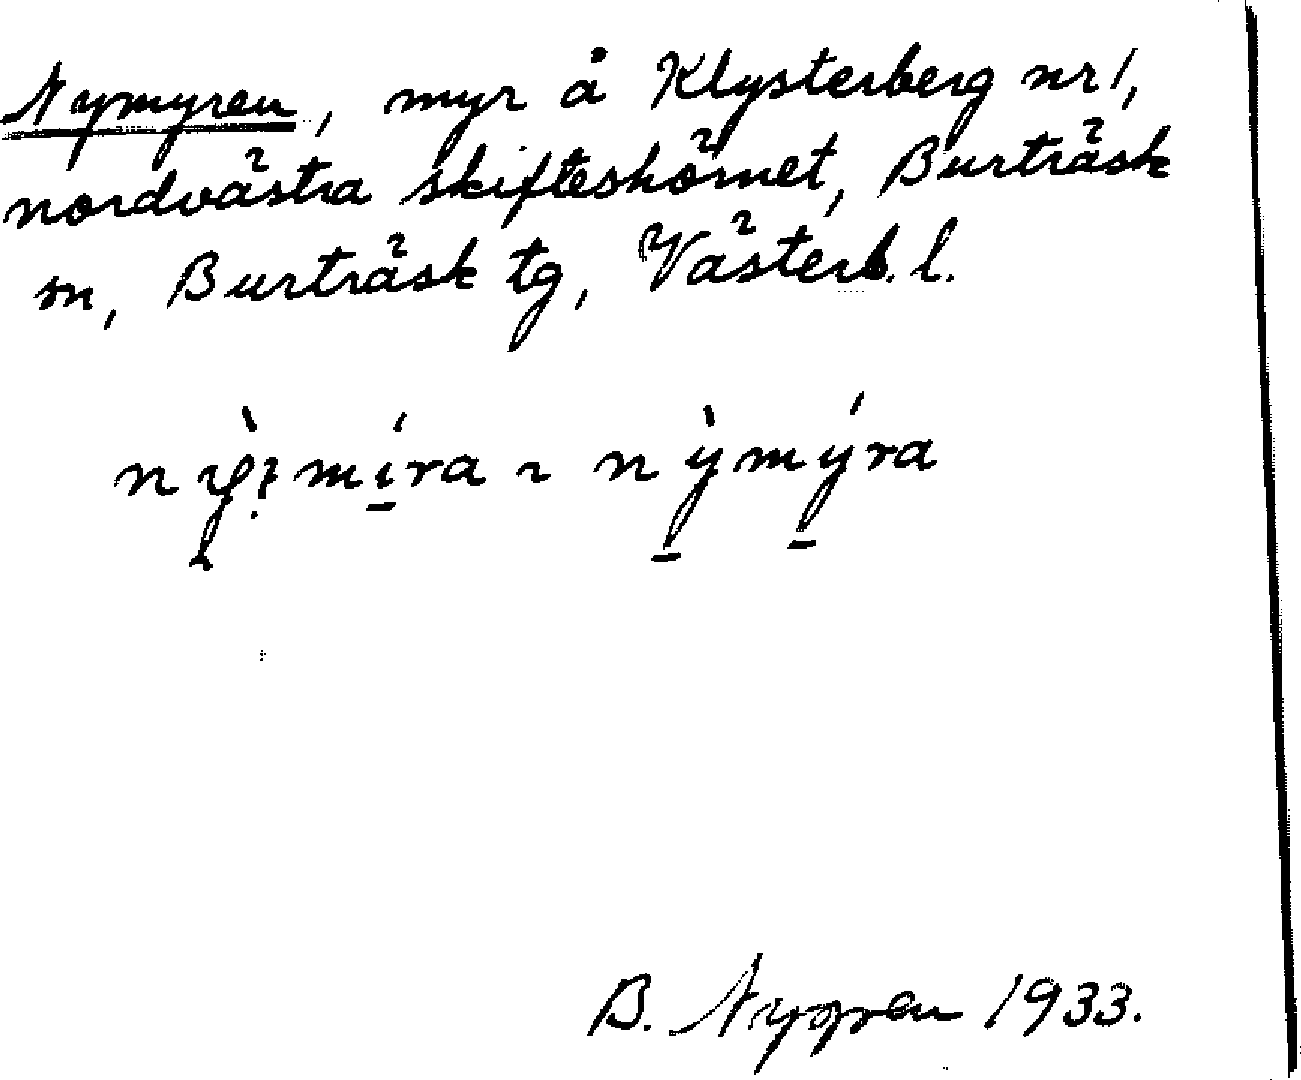 Nymyren, myr å Klysterberg nr 1,
nordvästra skifteshörnet, Burträsk
sn, Burträsk tg, Västerb. l.
nỳmýra
B. Nygren 1933.